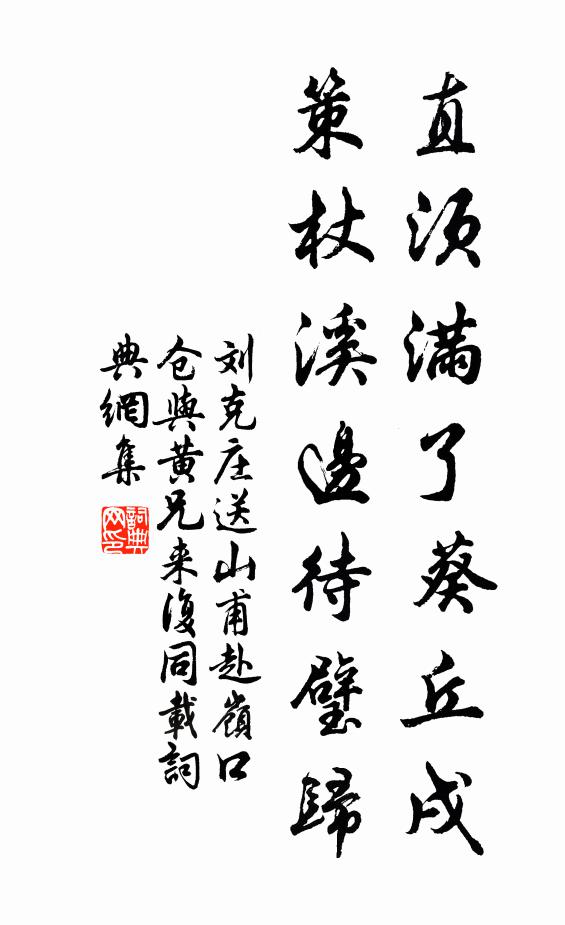 直须滿了葵丘戍
策杖溪邊待璧歸
刘克庄送山甫赴嶺口
仓與黄兄来復同載詞
典網集
詞典网印